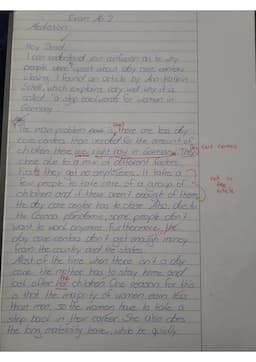 Exam No 2
Mediation
Hey David,
I can understand your confusion as to why
people were upset about day care centers
closing. I found an article by Ann-Kathrin
, which explains very well why it is
called "a step backwards for women in
Germany"
that
The main problem is, there are less day
care centers than needed for the amount of
children there are right now in Germany. They
day care centers
close due to a mix of different factors.
they got no employees. It takes a
few people to take care of a group of
not in the article
children and if there aren't enough of them
the day care center has to close. Also, due to
the Corona pandemic, some people don't
want to work anymore. Furthermore, the
day care centers don't get enough money
from the country and the states.
Most of the time when there isn't a day
care the mother has to stay home and
the
look after her children. One reason for this
is that the majority of women earn less
than men, so the women have to take a
step back in their career. She also
the long maternity leave, while be